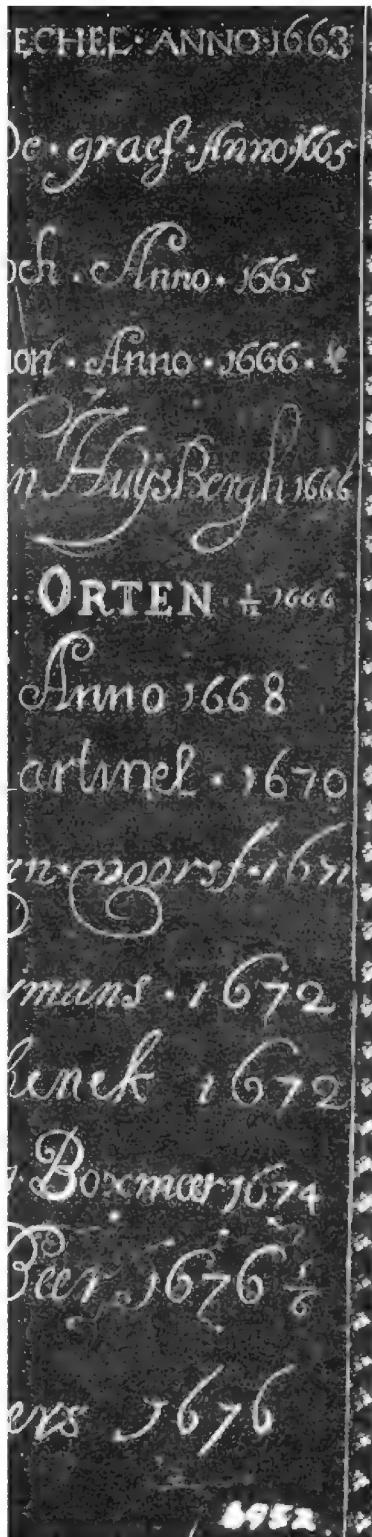 ECHEL · ANNO 1663
De · graef · Anno 1665
och · Anno · 1665
on · Anno · 1666 ·
n HuijsBergh 1666
· ORTEN · 1666
Anno 1668
artinel · 1670
an · 1671
mans · 1672
henck 1672
Boxmeer 1674
Beer 1676 1/6
ers 1676
6952